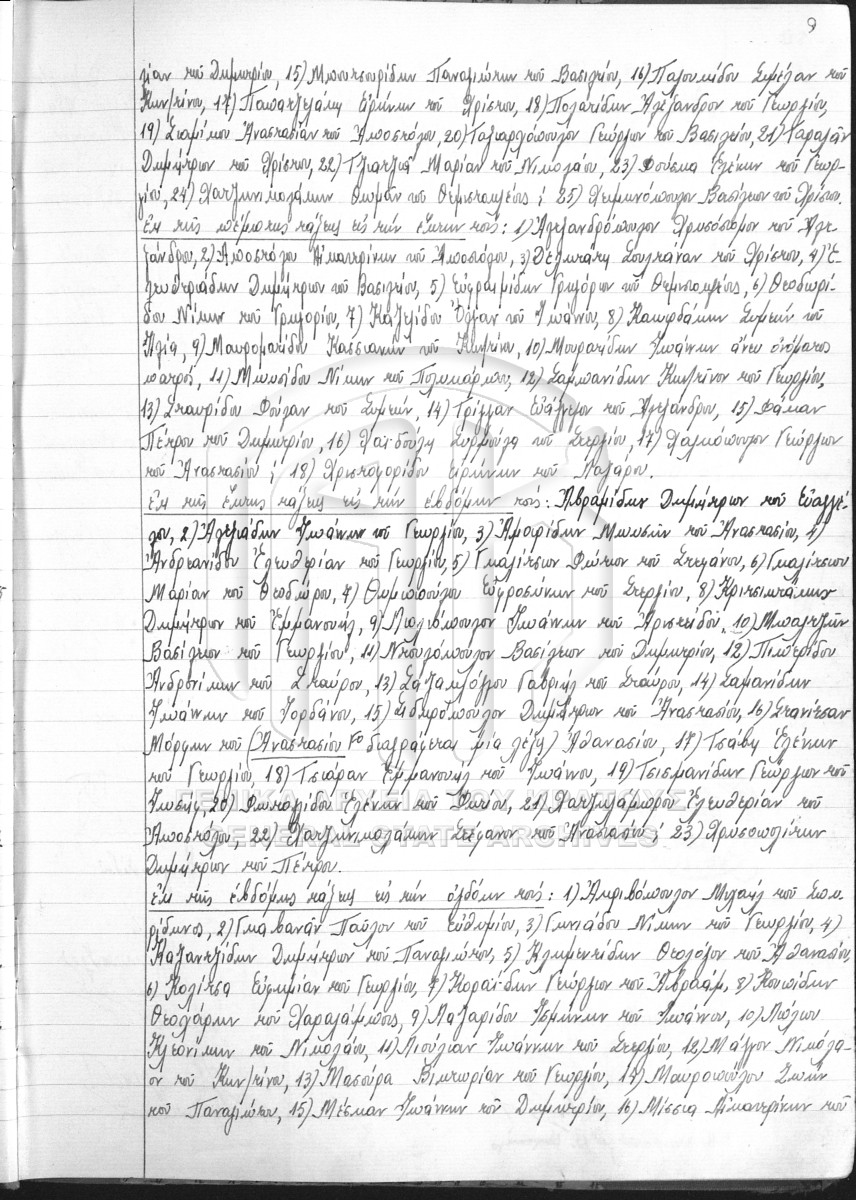 9
γίαν τοῦ Δημητρίου, 15) Μπουτσουρίδην Παναγιώτην τοῦ Βασιλείου, 16) Παλουκίδου Σιμέλαν τοῦ
Κων/τίνου, 17) Παπατζελάκη Εἰρήνην τοῦ Χρίστου, 18) Πολατίδην Ἀλέξανδρον τοῦ Γεωργίου,
19) Σιαμίκου Ἀναστασίαν τοῦ Ἀποστόλου, 20) Ταλιαρλόπουλον Γεώργιον τοῦ Βασιλείου, 21) Ταραλᾶν
Δημήτριον τοῦ Χρίστου, 22) Τζιατζιᾶ Μαρίαν τοῦ Νικολάου, 23) Φούσκα Ἑλένην τοῦ Γεωρ-
γίου, 24) Χατζηνικολάκην Θωμᾶν τοῦ Θεμιστοκλέους ἱ 25) Χειμωνόπουλον Βασίλειον τοῦ Χρίστου.
Ἐκ τῆς πέμπτης τάξεως εἰς τήν ἕκτην τούς: 1) Ἀλεξανδρόπουλον Χρυσόστομον τοῦ Ἀλε-
ξάνδρου, 2) Ἀποστόλου Αἰκατερίνην τοῦ Ἀποστόλου, 3) Δεληπάτη Σουλτάναν τοῦ Χρίστου, 4) Ἐ-
λευθεριάδην Δημήτριον τοῦ Βασιλείου, 5) Εὐφραιμίδην Γρηγόριον τοῦ Θεμιστοκλέους, 6) Θεοδωρί-
δου Νίκην τοῦ Γρηγορίου, 7) Καζεξίδου Ὄλγαν τοῦ Ἰωάννου, 8) Καπρδάκην Συμεών τοῦ
Ἠλία, 9) Μαυροματίδου Κασσιανήν τοῦ Κων/τίνου, 10) Μουρατίδην Ἰωάννην ἄνευ ὀνόματος
πατρός, 11) Μωυσίδου Νίκην τοῦ Πολυκάρπου, 12) Σαμπανίδην Κων/τῖνον τοῦ Γεωργίου,
13) Σταυρίδου Φούλαν τοῦ Συμεών, 14) Τρίγγαν Εὐάγγελον τοῦ Ἀλεξάνδρου, 15) Φάκαν
Πέτρον τοῦ Δημητρίου, 16) Χαϊδούλη Συρμούλα τοῦ Στεργίου, 17) Χαλκόπουλον Γεώργιον
τοῦ Ἀναστασίου ἱ 18) Χριστογορίδου Εἰρήνην τοῦ Λαζάρου.
Ἐκ τῆς ἕκτης τάξεως εἰς τήν ἑβδόμην τούς: Ἀβραμίδην Δημήτριον τοῦ Εὐαγγέ-
λου, 2) Ἀλεξιάδην Ἰωάννην τοῦ Γεωργίου, 3) Ἀμοιρίδην Μωυσῆν τοῦ Ἀναστασίου, 4)
Ἀνδρεανίδου Ἐλευθερίαν τοῦ Γεωργίου, 5) Γκαλίτσιον Φώτιον τοῦ Στεφάνου, 6) Γκαλίτσιου
Μαρίαν τοῦ Θεοδώρου, 7) Θωμοπούλου Εὐφροσύνην τοῦ Στεργίου, 8) Κριτσιωτάκην
Δημήτριον τοῦ Ἐμμανουήλ, 9) Λιολιόπουλον Ἰωάννην τοῦ Ἀριστείδου, 10) Μπαλτζῆν
Βασίλειον τοῦ Γεωργίου, 11) Ντουλόπουλον Βασίλειον τοῦ Δημητρίου, 12) Πιπερίδου
Ἀνδρονίκην τοῦ Σταύρου, 13) Σαζακλόγλου Γαβριήλ τοῦ Σταύρου, 14) Σαμανίδην
Ἰωάννην τοῦ Ἰορδάνου, 15) Σιδηρόπουλον Δημήτριον τοῦ Ἀναστασίου, 16) Στανίτσαν
Μόρφην τοῦ (Ἀναστασίου διαγράφεται μία λέξη) Ἀθανασίου, 17) Τσάβη Ἑλένην
τοῦ Γεωργίου, 18) Τσιάραν Ἐμμανουήλ τοῦ Ἰωάννου, 19) Τσισμανίδην Γεώργιον τοῦ
Ἰωσήφ, 20) Φωτογλίδου Ἑλένην τοῦ Φωτίου, 21) Χατζηλάμπρου Ἐλευθερίαν τοῦ
Ἀποστόλου, 22) Χατζηνικολάκην Στέφανον τοῦ Ἀναστασίου ἱ 23) Χρυσοπολίτην
Δημήτριον τοῦ Πέτρου.
Ἐκ τῆς ἑβδόμης τάξεως εἰς τήν ὀγδόην τούς: 1) Ἀκριβόπουλον Μιχαήλ τοῦ Σπυ-
ρίδωνος, 2) Γκαβανᾶν Παῦλον τοῦ Εὐθυμίου, 3) Γωνιάδου Νίκην τοῦ Γεωργίου, 4)
Καζαντζίδην Δημήτριον τοῦ Παναγιώτου, 5) Κλημεντίδην Θεολόγον τοῦ Ἀθανασίου,
6) Κολίτσα Εὐφημίαν τοῦ Γεωργίου, 7) Κοραΐδην Γεώργιον τοῦ Ἀβραάμ, 8) Κουπίδην
Θεολάρην τοῦ Χαραλάμπους, 9) Λαζαρίδου Ἰσμήνην τοῦ Ἰωάννου, 10) Λιόλιου
Κλεονίκην τοῦ Νικολάου, 11) Λιούλιαν Ἰωάννην τοῦ Στεργίου, 12) Μάγγον Νικόλα-
ον τοῦ Κων/τίνου, 13) Μασούρα Βικτωρίαν τοῦ Γεωργίου, 14) Μαυροπούλου Ζωήν
τοῦ Παναγιώτου, 15) Μέσκαν Ἰωάννην τοῦ Δημητρίου, 16) Μίσσια Αἰκατερίνην τοῦ
ΓΕΝΙΚΑ ΑΡΧΕΙΑ ΤΟΥ ΚΡΑΤΟΥΣ
GENERAL STATE ARCHIVES